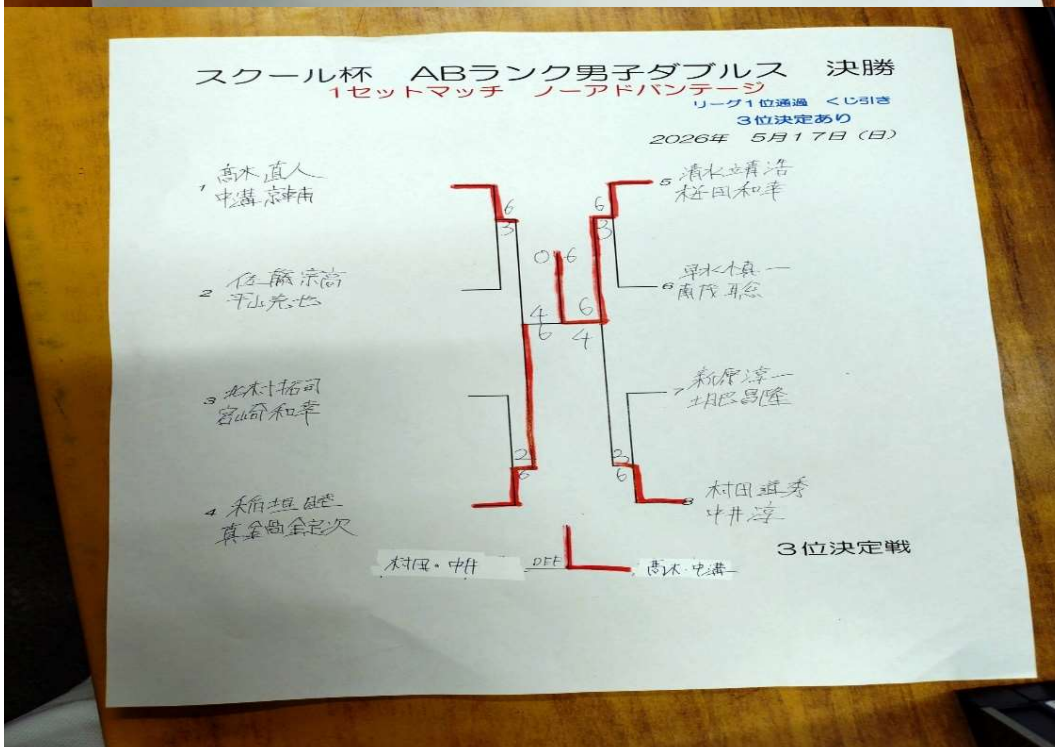 スクール杯 ABランク男子ダブルス 決勝
1セットマッチ ノーアドバンテージ
リーグ1位通過 くじ引き
3位決定あり
2026年 5月17日(日)
1
高木直人
中溝京輔
2
佐藤宗高
平山亮也
3
北村拓司
宮崎和幸
4
稲垣
真金
5
清水
桜田和幸
6
早水慎一
南茂聡
7
新屋淳一
土肥昌隆
8
村田
中井淳
6
3
6
3
0-6
4
6
6
4
2
6
3
6
3位決定戦
村田・中井 DEF 高木・中溝